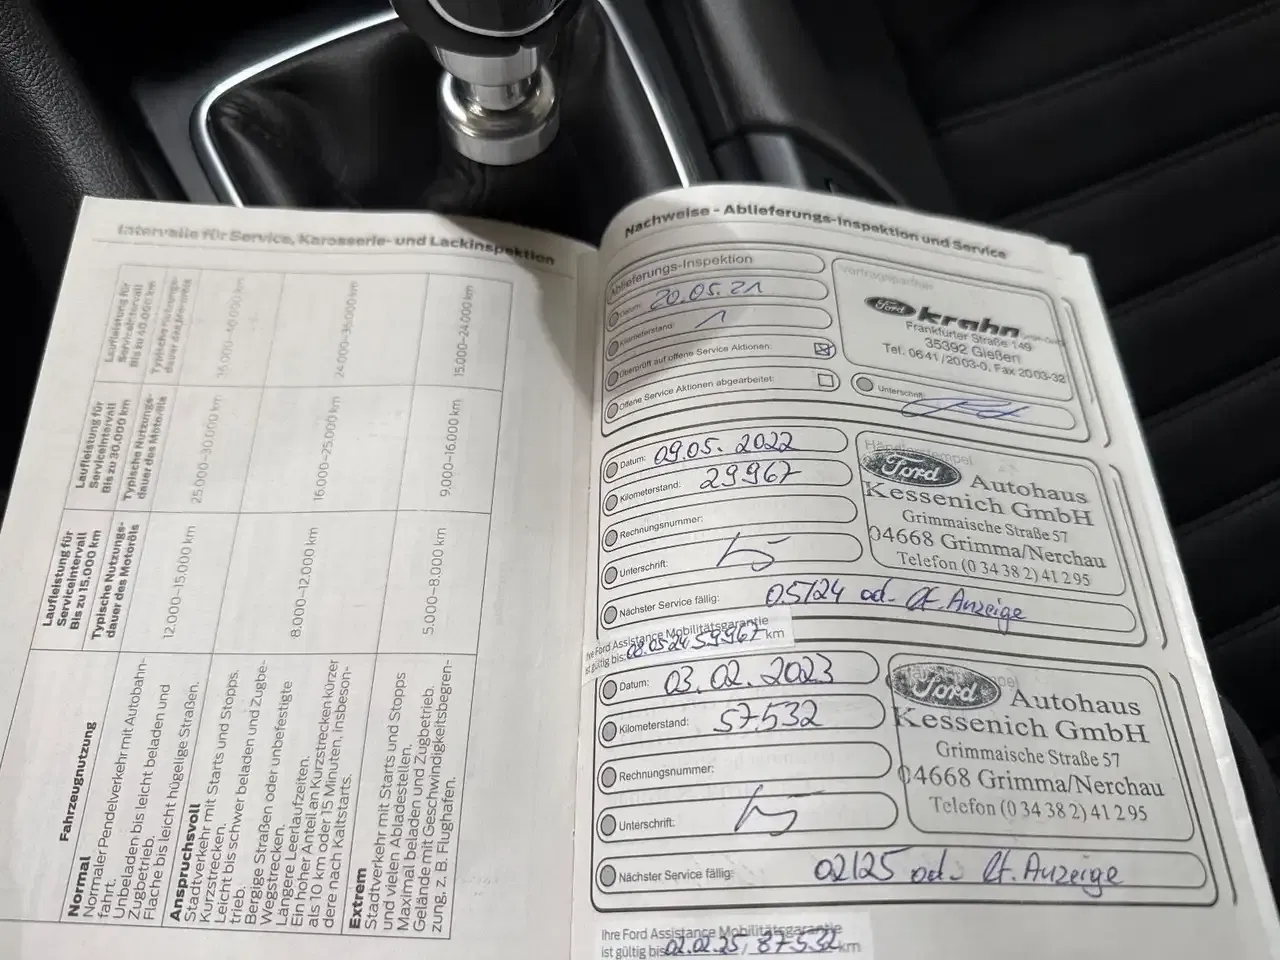 Intervalle für Service, Karosserie- und Lackinspektion
Fahrzeugnutzung
Laufleistung für
Serviceintervall
Bis zu 15.000 km
Typische Nutzungs-
dauer des Motoröls
Laufleistung für
Serviceintervall
Bis zu 30.000 km
Typische Nutzungs-
dauer des Motoröls
Laufleistung für
Serviceintervall
Bis zu 40.000 km
Typische Nutzungs-
dauer des Motoröls
Normal
Normaler Pendelverkehr mit Autobahn-
fahrt.
Unbeladen bis leicht beladen und
Zugbetrieb.
Flache bis leicht hügelige Straßen.
12.000–15.000 km
25.000–30.000 km
Anspruchsvoll
Stadtverkehr mit Starts und Stopps.
Kurzstrecken.
Leicht bis schwer beladen und Zugbe-
trieb.
Bergige Straßen oder unbefestigte
Wegstrecken.
Längere Leerlaufzeiten.
Ein hoher Anteil an Kurzstrecken kürzer
als 10 km oder 15 Minuten, insbeson-
dere nach Kaltstarts.
8.000–12.000 km
16.000–25.000 km
24.000–35.000 km
Extrem
Stadtverkehr mit Starts und Stopps
und vielen Abladestellen.
Maximal beladen und Zugbetrieb.
Gelände mit Geschwindigkeitsbegren-
zung, z. B. Flughafen.
5.000–8.000 km
9.000–16.000 km
15.000–24.000 km
Nachweise - Ablieferungs-Inspektion und Service
Ablieferungs-Inspektion
Datum: 20.05.21
Kilometerstand: 1
Überprüft auf offene Service Aktionen:
Offene Service Aktionen abgearbeitet:
Vertragspartner
Ford krahn
Frankfurter Straße 149
35392 Gießen
Tel. 0641/2003-0, Fax 2003-32
Unterschrift:
Datum: 09.05.2022
Kilometerstand: 29967
Rechnungsnummer:
Unterschrift:
Nächster Service fällig: 05/24 od. lt. Anzeige
Händlerstempel
Ford Autohaus
Kessenich GmbH
Grimmaische Straße 57
04668 Grimma/Nerchau
Telefon (0 34 38 2) 4 12 95
Ihre Ford Assistance Mobilitätsgarantie
ist gültig bis: 08.05.24, 59967 km
Datum: 03.02.2023
Kilometerstand: 57532
Rechnungsnummer:
Unterschrift:
Nächster Service fällig: 02/25 od. lt. Anzeige
Ford Autohaus
Kessenich GmbH
Grimmaische Straße 57
04668 Grimma/Nerchau
Telefon (0 34 38 2) 4 12 95
Ihre Ford Assistance Mobilitätsgarantie
ist gültig bis 02.02.25, 87532 km